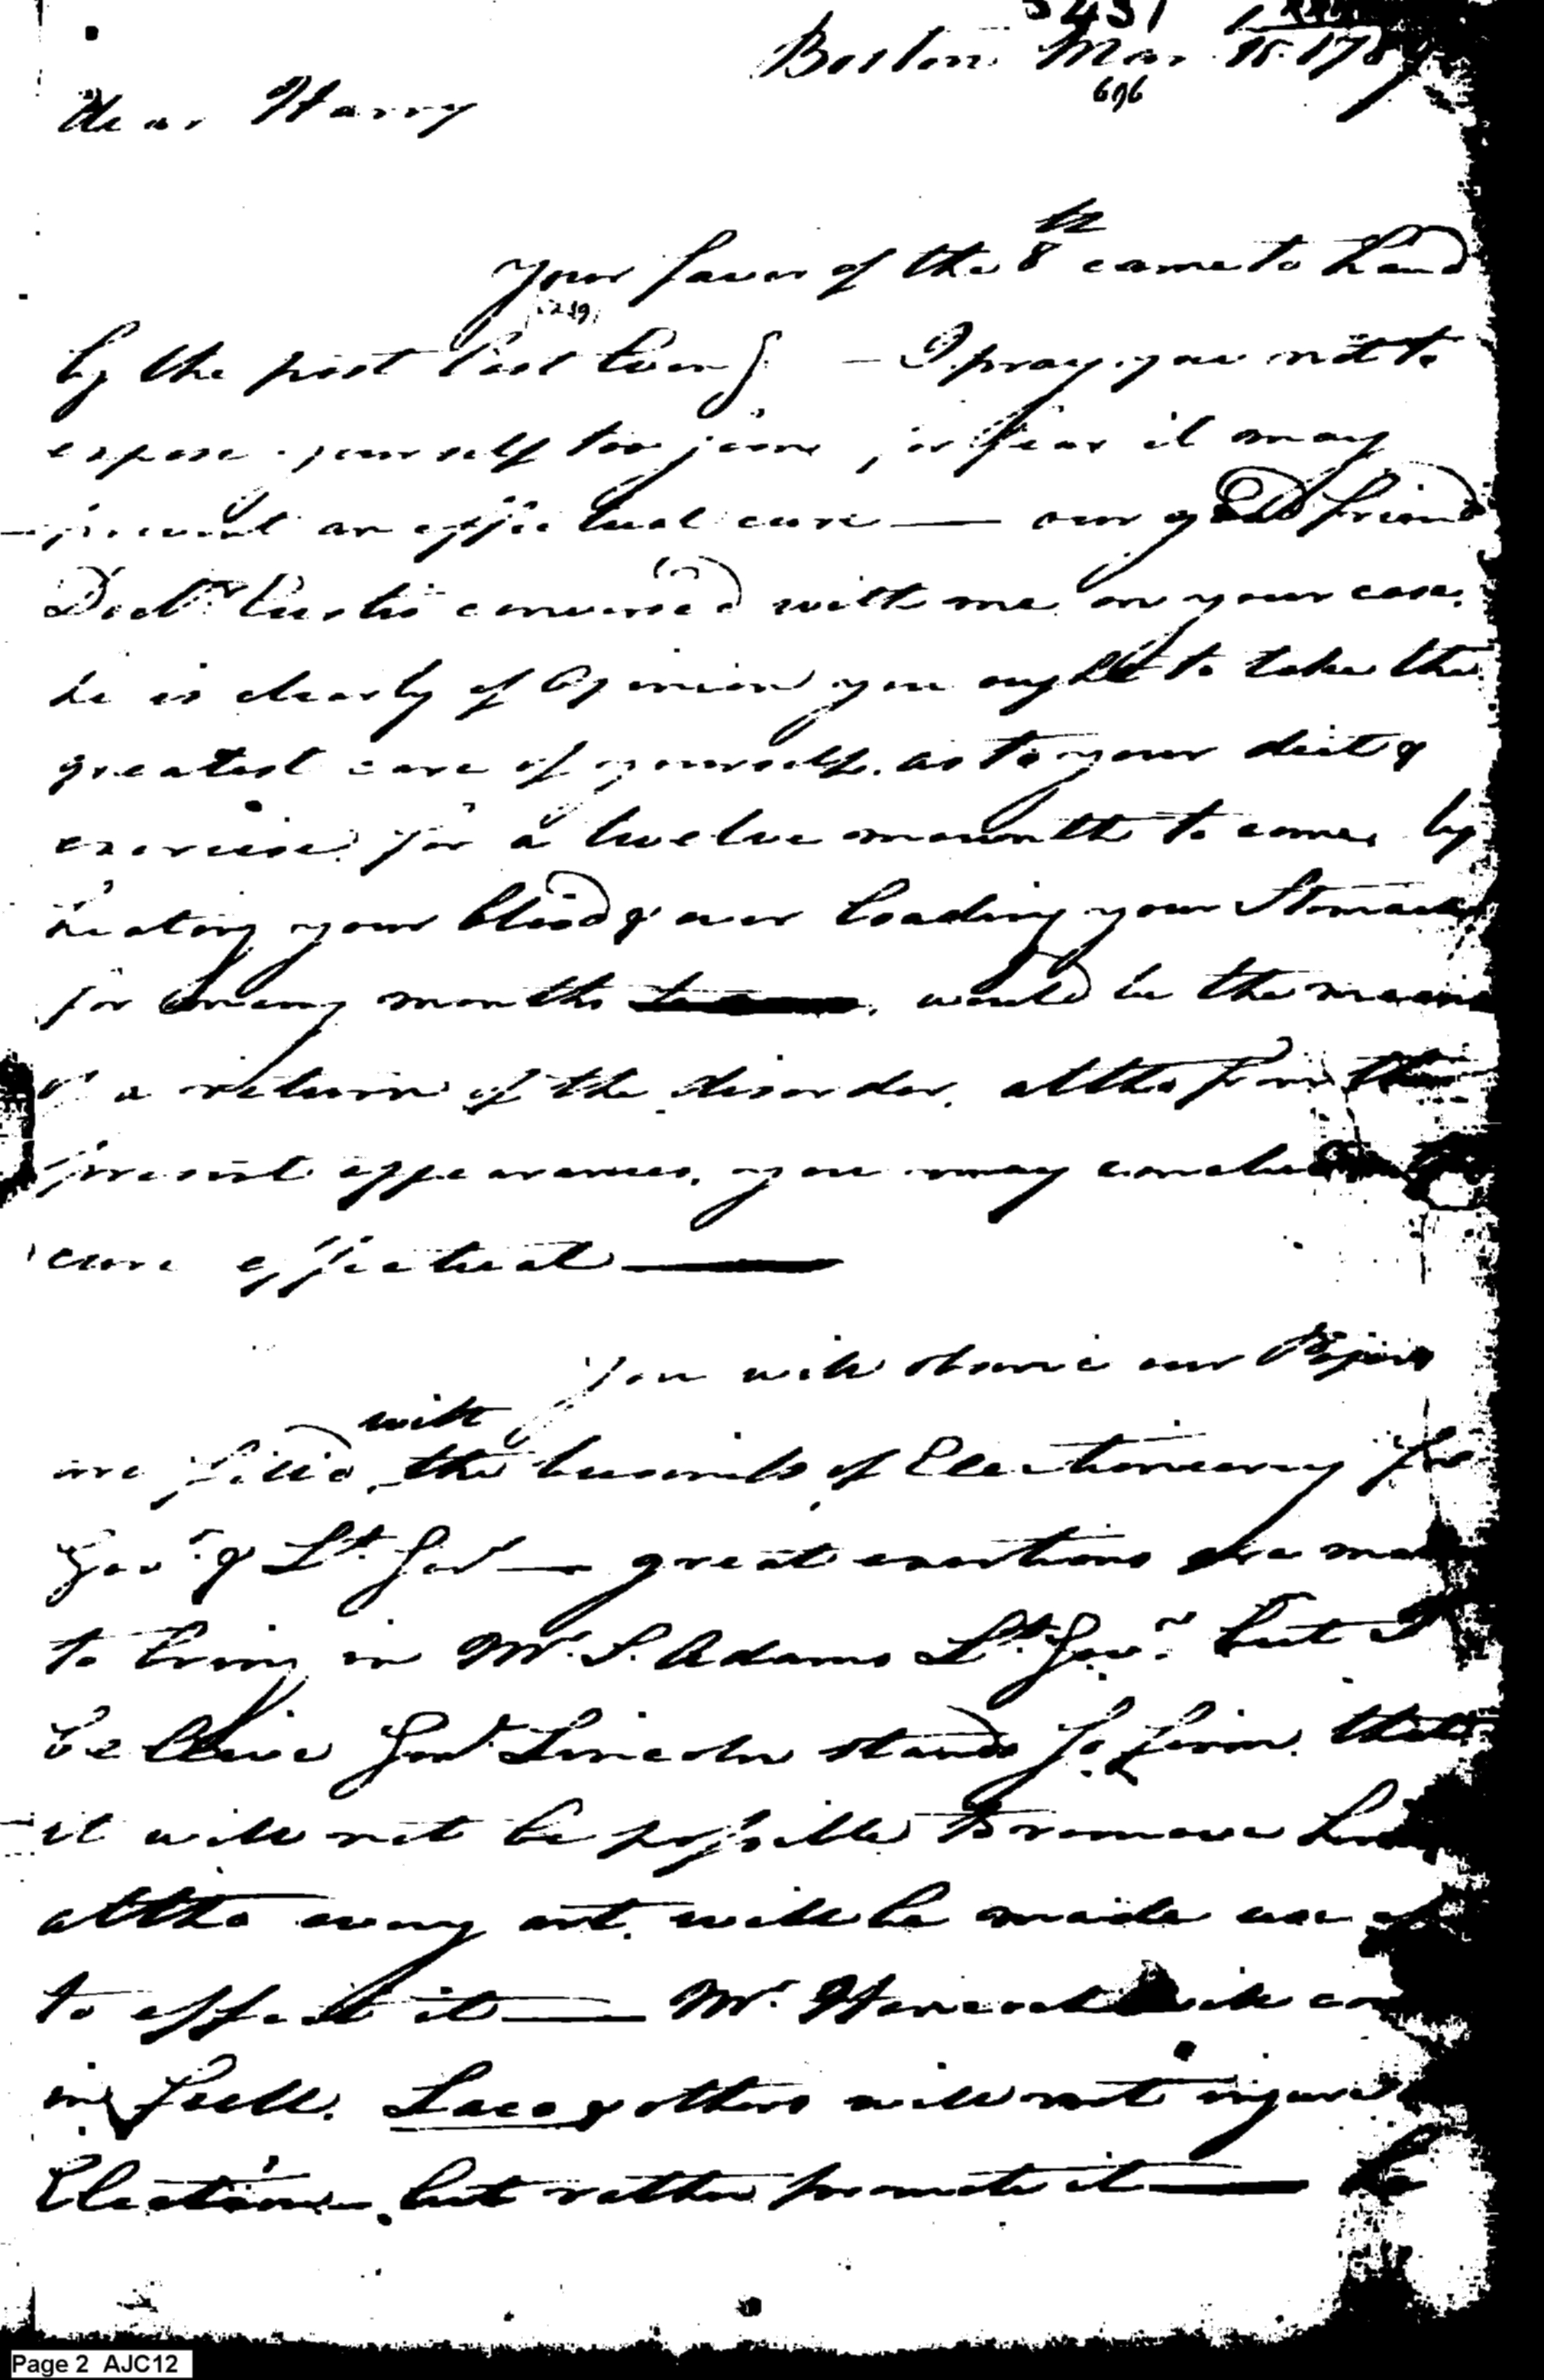 5431
Boston Mar 15. 1789
696
Dear Harry
your favor of the 8th came to hand
by the post last Eveng — I pray you not to
expose yourself too soon, for fear it may
prevent an effectual cure — our good friend
Doctr Eustis convers'd with me on your case.
he is clearly of Opinion you ought to take the
greatest care of yourself. as to your diet &
exercise for a twelve mounth to come, by
heating your blood & over loading your Stomach
for many months would be the means
of a return of the disorder. altho from the
present appearances, you may conclude
cure effectual —
You will observe our Papers
are fill'd with the business of Electioneering for
Govr. & Lt. Govr — great exertions are made
to bring in Mr. S. Adams Lt. Govr. but I
believe Genl. Lincoln stands so firm. that
it will not be possible to remove him
altho every art. will be made use of
to effect it — Mr. Hancock will come
in full. Laco & others will not injure
Election, but rather promote it — he
Page 2 AJC12